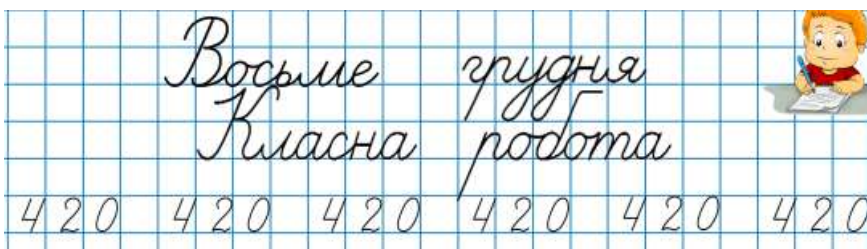 Восьме грудня
Класна робота
420 420 420 420 420 420